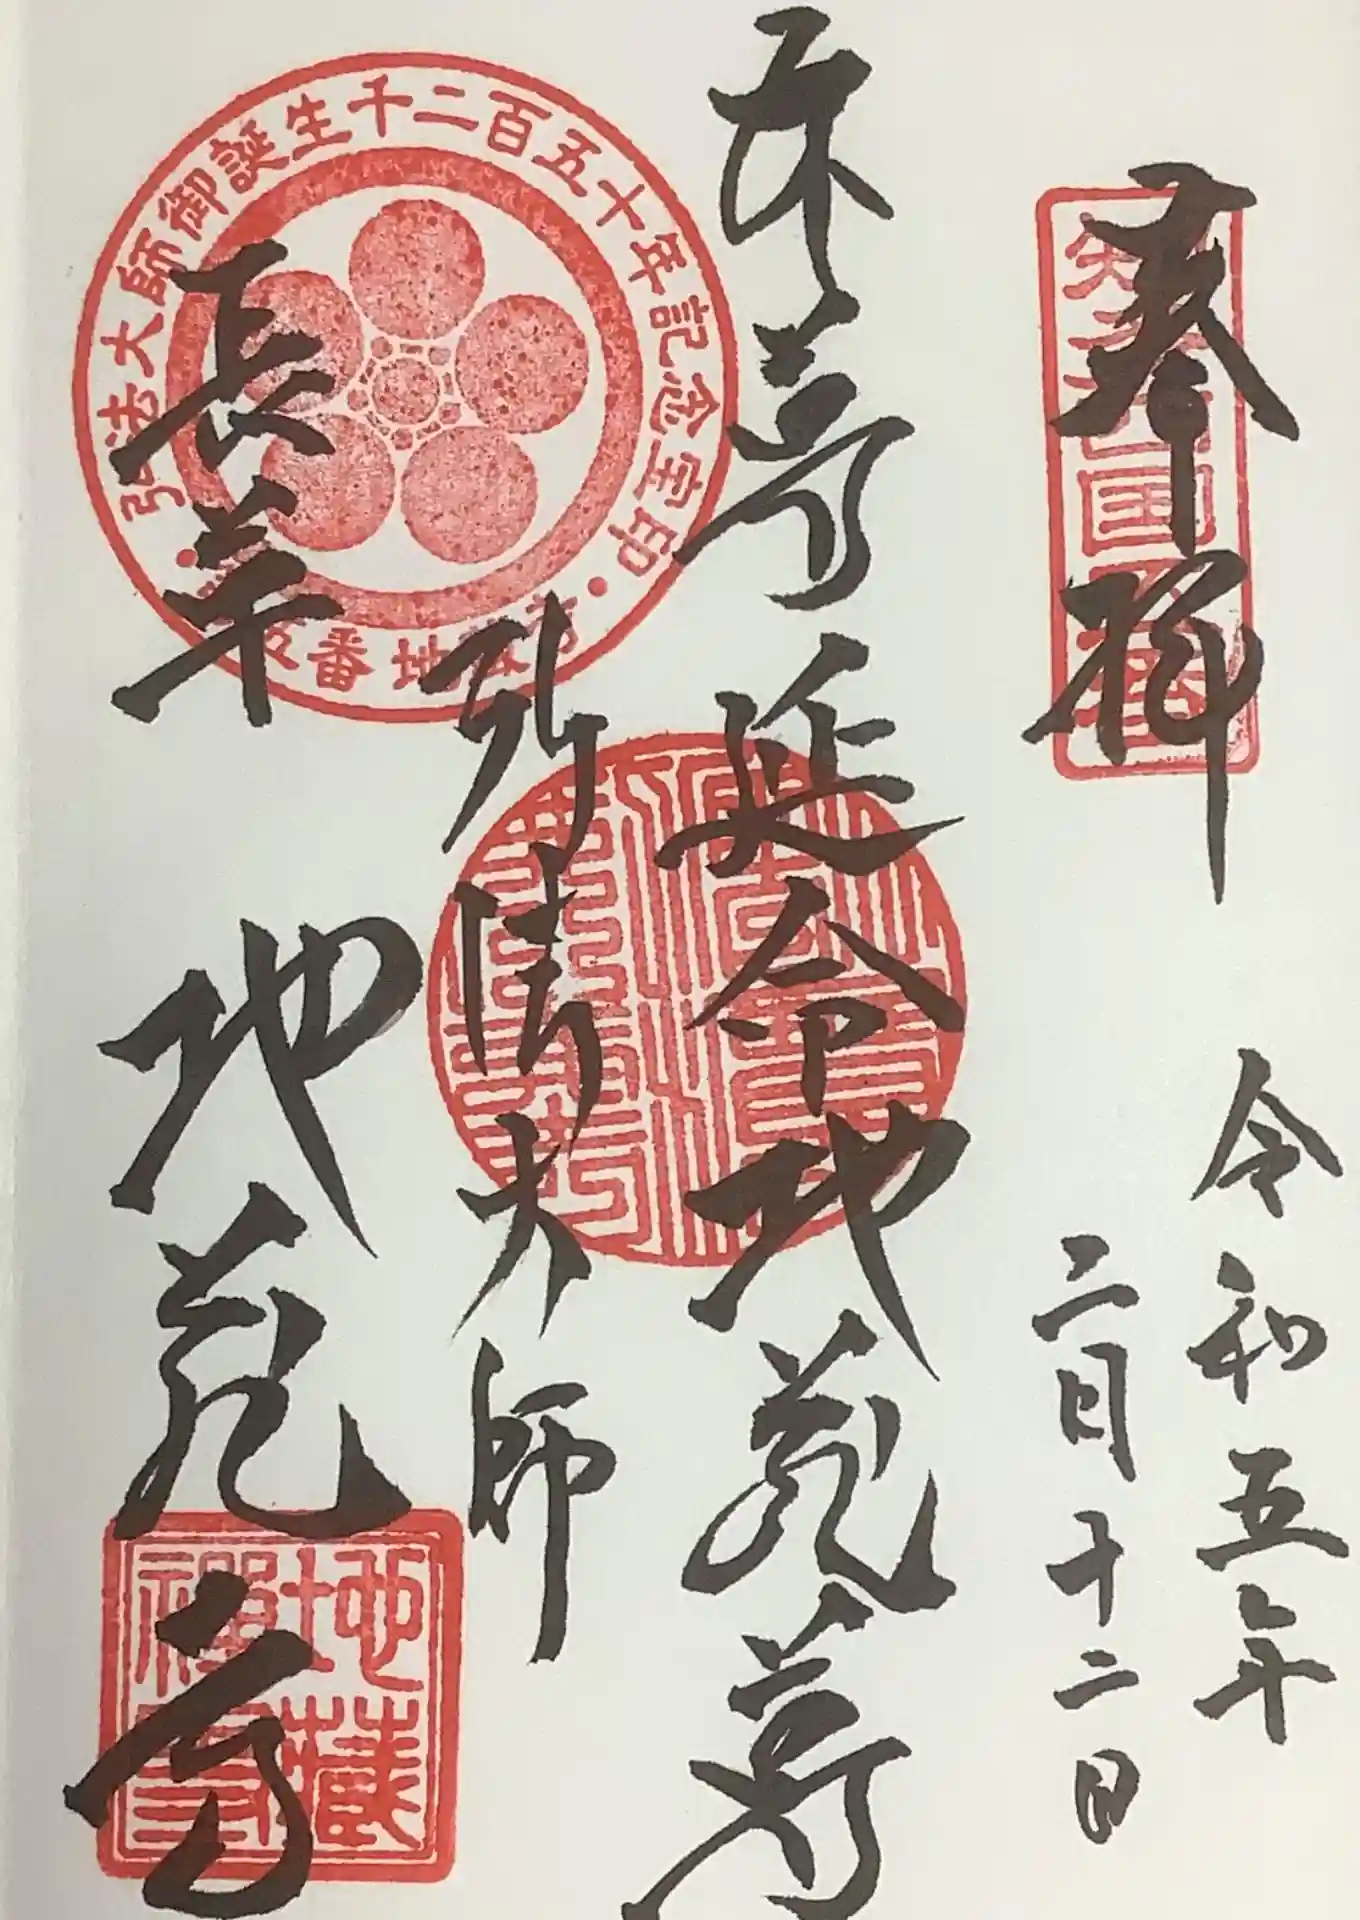 奉拝
令和五年
二月十二日
本尊 延命地蔵尊
弘法大師
長草 地蔵寺
弘法大師御誕生千二百五十年記念宝印
地藏禪寺